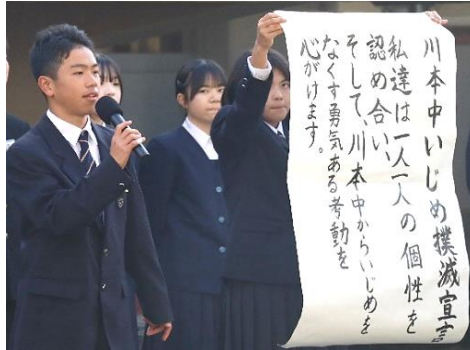 川本中いじめ撲滅宣言
私達は一人一人の個性を
認め合い、
そして、川本中からいじめを
なくす勇気ある考動を
心がけます。